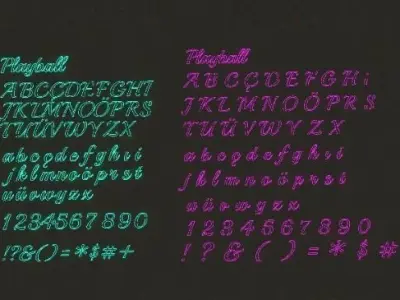 Playball
ABCÇDEFGHI
JKLMNOÖPRS
TUÜVWYZX
abcçdefghıi
jklmnoöprst
uüvwyzx
1234567890
!?&()=*$#+
Playball
ABCÇDEFGHİ
JKLMNOÖPRS
TUÜVWYZX
abcçdefghıi
jklmnoöprst
uüvwyzx
1234567890
!?&()=*$#+